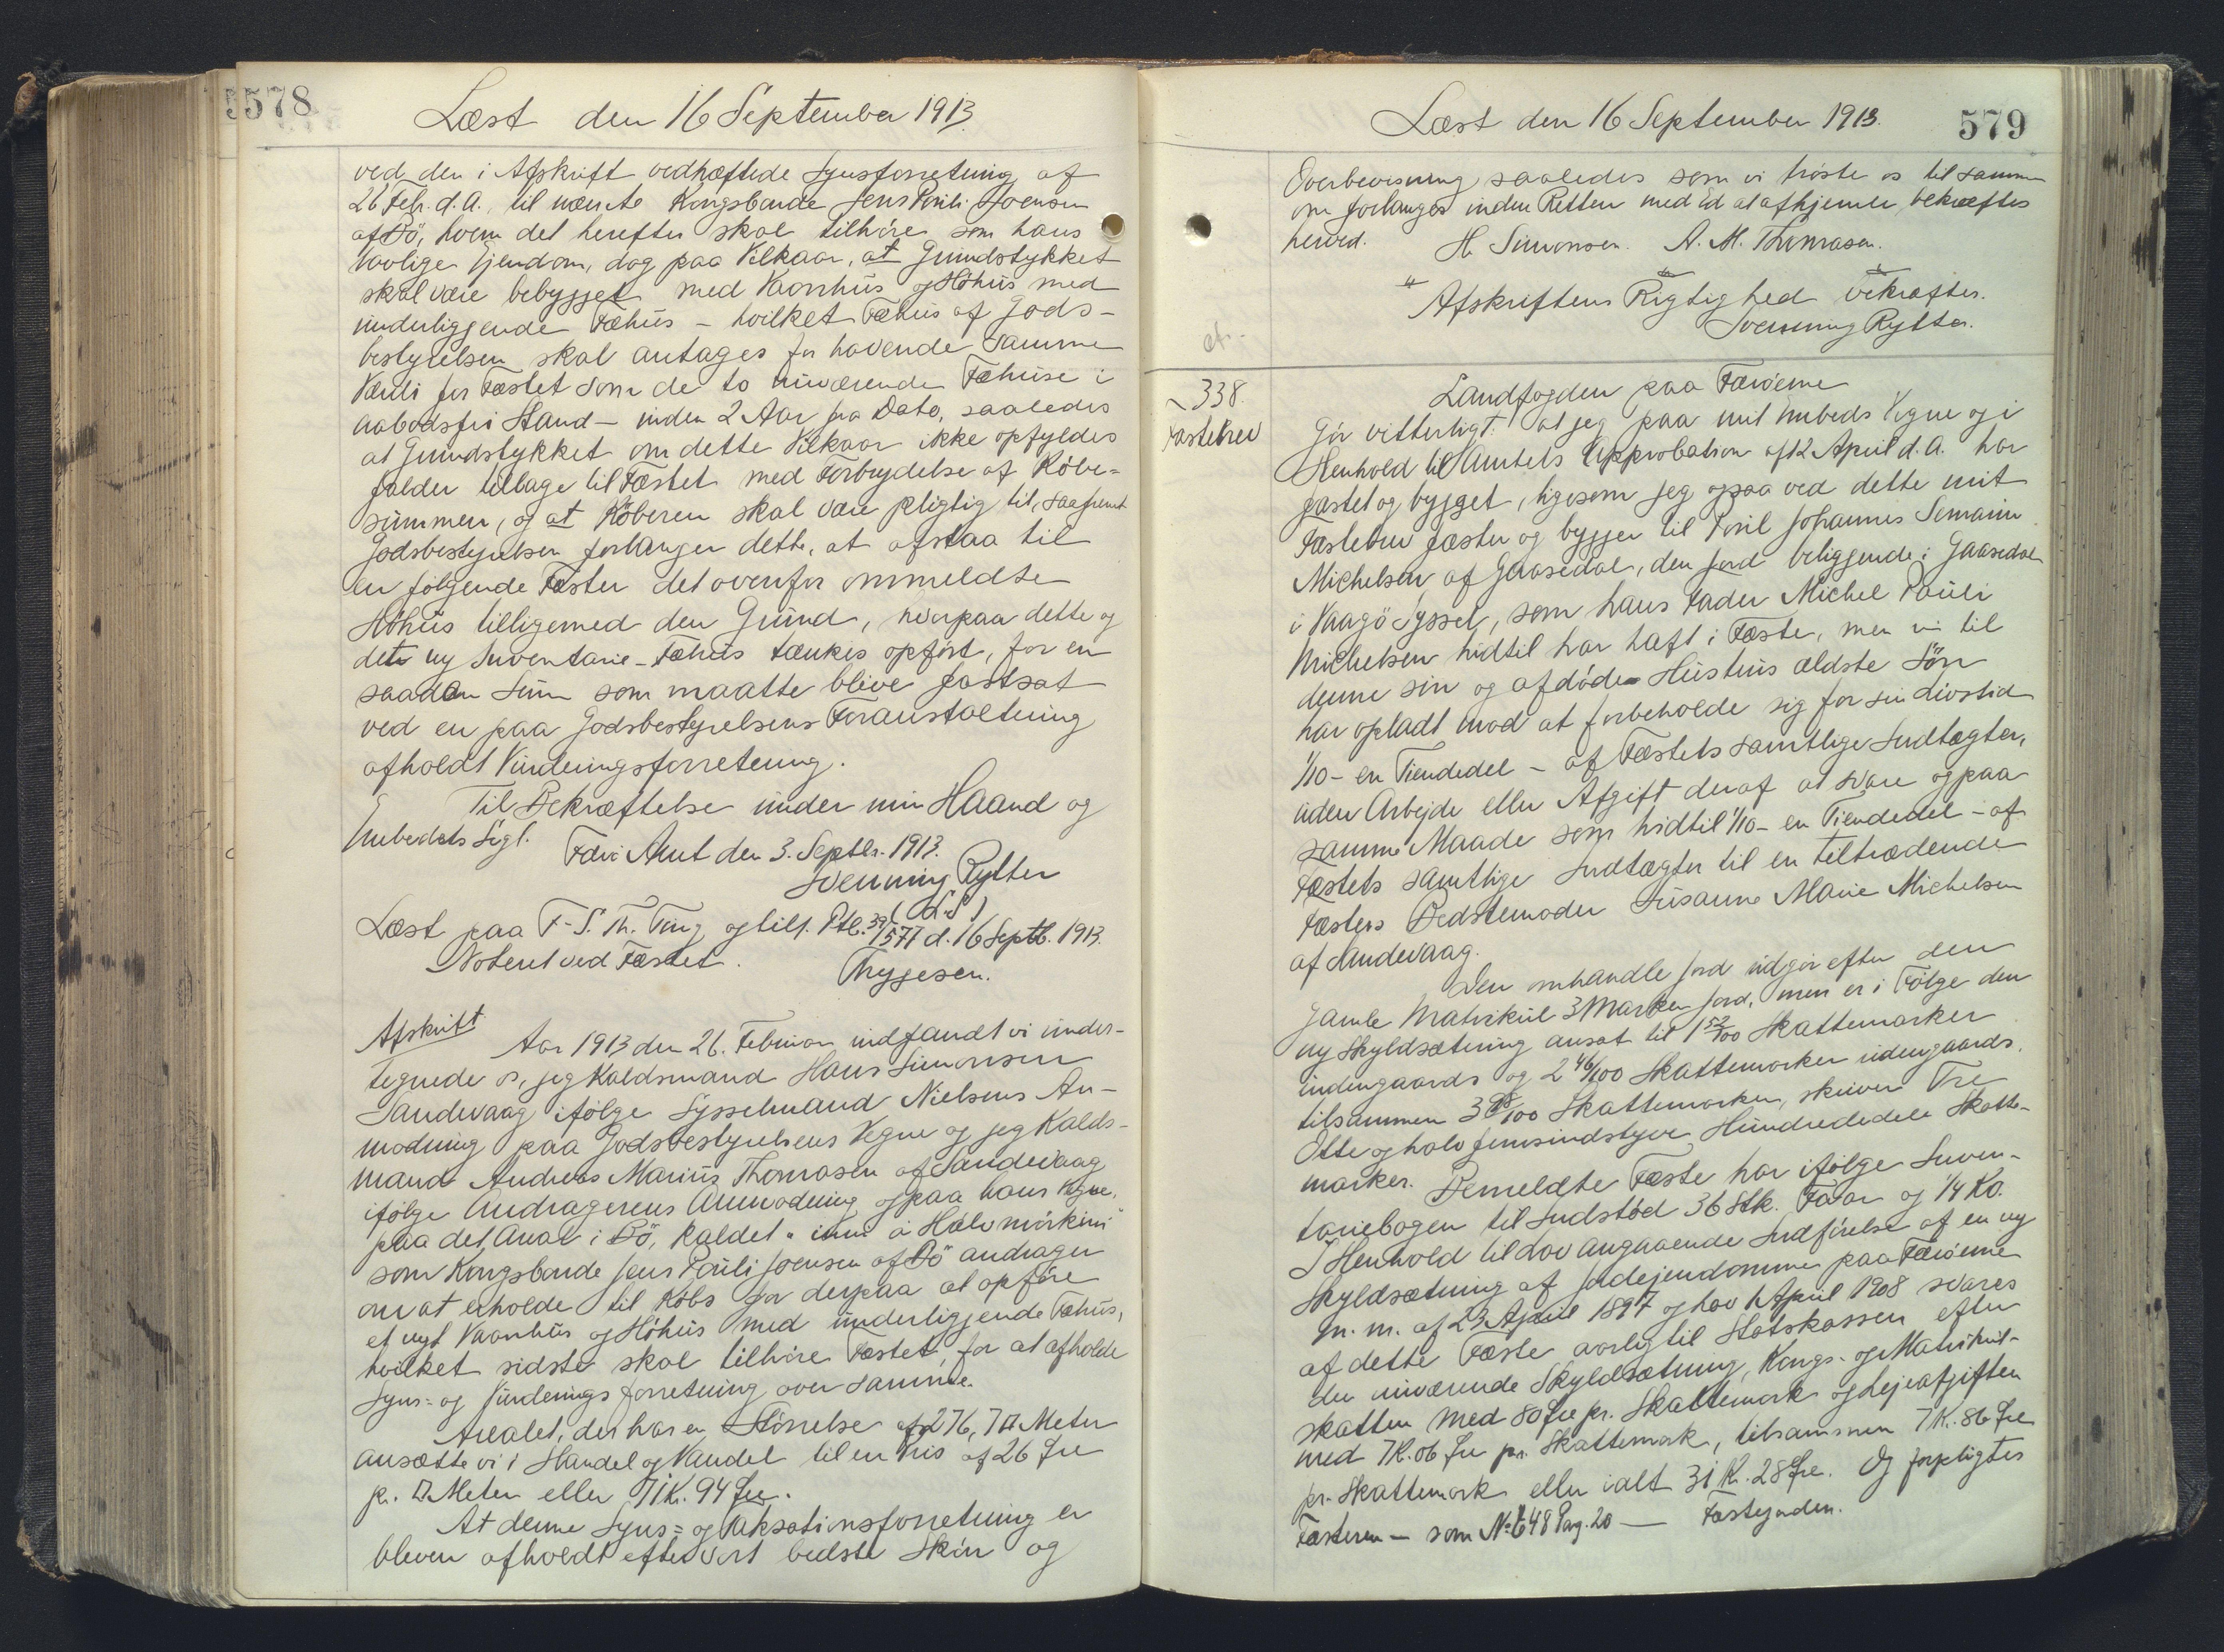 578
Læst den 16 September 1913.
ved den i Afskrift vedhæftede Synsforretning af
26 Febr. d.A. til nævnte Kongsbonde Jens Pauli Joensen
af Bö, hvem det herefter skal tilhöre som hans
lovlige Ejendom, dog paa Vilkaar, at Grundstykket
skal være bebygget med Vaonhus og Höhus med
underliggende Fæhus – hvilket Fæhus af Gods-
bestyrelsen skal antages for havende samme
Værdi for Fæstet som de to nuværende Fæhuse i
aabodsfri Stand – inden 2 Aar fra Dato, saaledes
at Grundstykket om dette Vilkaar ikke opfyldes
falder tilbage til Fæstet med Forbrydelse af Köbe-
summen, og at Köberen skal være pligtig til, saafremt
Godsbestyrelsen forlanger dette, at afstaa til
en fölgende Fæster det ovenfor ommeldte
Höhus tilligemed den Grund, hvorpaa dette og
det ny Inventarie-Fæhus tænkes opfört, for en
saadan Sum som maatte blive fastsat
ved en paa Godsbestyrelsens Foranstaltning
afholdt Vurderingsforretning.
Til Bekræftelse under min Haand og
Embedets Segl.
Færö Amt den 3. Septbr. 1913.
Svenning Rytter
(L.S.)
Læst paa F-S. Th. Ting og tilf. Ptb. 39/577 d. 16 Septb. 1913.
Noteret ved Fæstet.
Thygesen.
Afskrift
Aar 1913 den 26. Februar indfandt vi under-
tegnede os, jeg Kaldsmand Hans Simonsen
Sandevaag ifölge Sysselmand Nielsens An-
modning paa Godsbestyrelsens Vegne og jeg Kalds-
mand Andreas Marius Thomasen af Sandevaag
ifölge Andragerens Anmodning og paa hans Vegne,
paa det Areal i Bö, kaldet "inni á Hálvmörkini"
som Kongsbonde Jens Pauli Joensen af Bö andrager
om at erholde til Köbs for derpaa at opföre
et nyt Vaonhus og Höhus med underliggende Fæhus,
hvilket sidste skal tilhöre Fæstet, for at afholde
Syns- og Vurderingsforretning over samme.
Arealet, der har en Störrelse af 276,7 □ Meter
ansætte vi i Handel og Vandel til en Pris af 26 Öre
pr. □ Meter eller 71 Kr. 94 Öre.
At denne Syns- og Taksationsforretning er
bleven afholdt efter vort bedste Skön og
Læst den 16 September 1913.
579
Overbevisning saaledes som vi tröste os til samme
om forlanges inden Retten med Ed at afhjemle, bekræftes
herved.
H. Simonsen. A. M. Thomasen.
Afskriftens Rigtighed bekræftes.
Svenning Rytter.
338.
Fæstebrev
Landfogden paa Færöerne
Gör vitterligt: at jeg paa mit Embeds Vegne og i
Henhold til Amtets Approbation af 12 April d.A. har
fæstet og bygget, ligesom jeg ogsaa ved dette mit
Fæstebrev fæster og bygger til Poul Johannes Semain
Michelsen af Gaasedal, den Jord beliggende i Gaasedal
i Vaagö Syssel, som hans Fader Michel Pauli
Michelsen hidtil har haft i Fæste, men nu til
denne sin og afdöde Hustrus ældste Sön
har opladt mod at forbeholde sig for sin Livstid
1/10 – en Tiendedel – af Fæstets samtlige Indtægter,
uden Arbejde eller Afgift deraf at svare og paa
samme Maade som hidtil 1/10 – en Tiendedel – af
Fæstets samtlige Indtægter til en tiltrædende
Fæsters Bedstemoder Susanne Marie Michelsen
af Sandevaag.
Den omhandle Jord udgör efter den
gamle Matrikul 3 Marker Jord, men er i Fölge den
ny Skyldsætning ansat til 1 52/100 Skattemarker
indengaards og 2 46/100 Skattemarker udengaards,
tilsammen 3 98/100 Skattemarker, skriver Tre
Otte og halvfemsindstyve Hundrededele Skatte-
marker. Bemeldte Fæste har ifölge Inven-
tariebogen til Indstöd 36 Stk. Faar og 1/4 Ko.
I Henhold til Lov angaaende Indförelse af en ny
Skyldsætning af Jordejendomme paa Færöerne
m. m. af 23 April 1897 og Lov 1 April 1908 svares
af dette Fæste aarlig til Statskassen efter
den nuværende Skyldsætning, Kongs- og Matrikul-
skatten med 80 Öre pr. Skattemark og Lejeafgiften
med 7 Kr. 06 Öre pr. Skattemark, tilsammen 7 Kr. 86 Öre
pr. Skattemark eller ialt 31 Kr. 28 Öre. Og forpligtes
Fæsteren – som No 648 Pag. 20 – Fæstejorden.